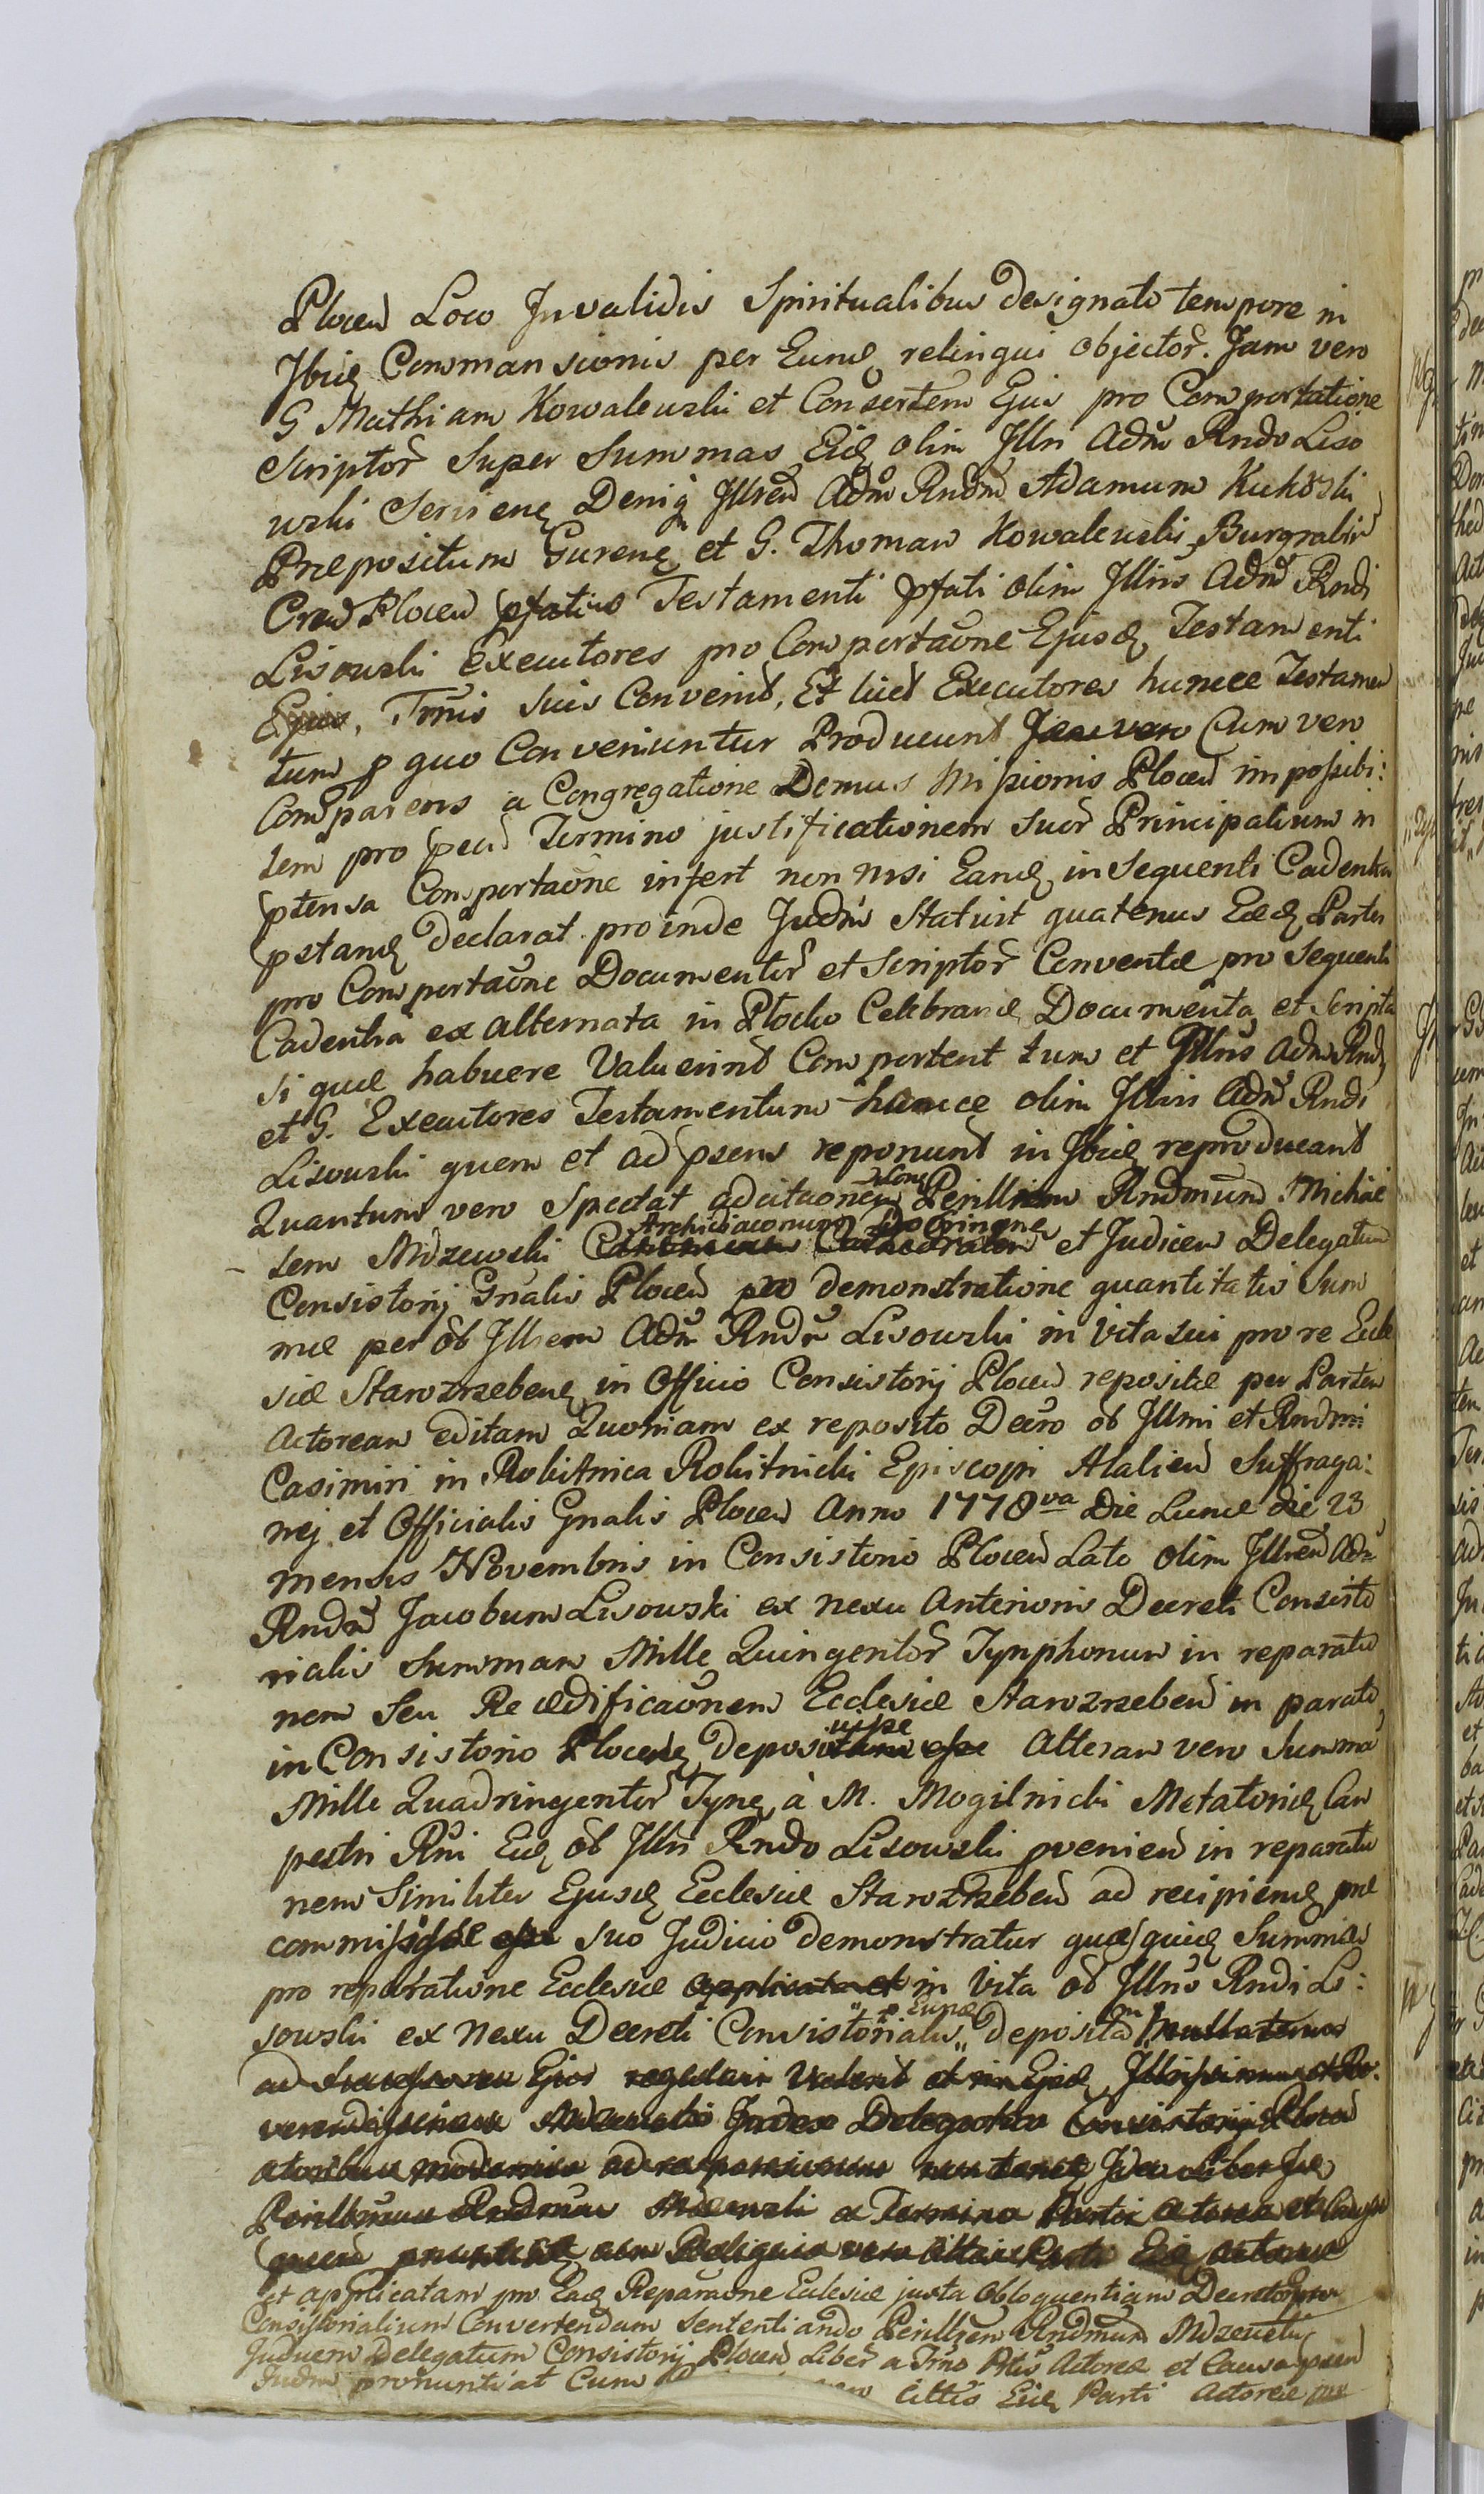 Plocen Loco Invalidis Spiritualibus designato tempore in
Ibid Commansionis per Eund relinqui objector. Jam vero
G Mathiam Kowalewski et Consortem Ejus pro Comportatione
Scriptor Super Summas Eid olim Illri Adm Rndo Liso
wski Serviend Deniq Illrem Adm Rndm Adamum Kukowski
Præpositum Gurenz et G. Thomam Kowalewski Burgrabin
Cren Plocen pfatis Testamenti pfati olim Illris Adm Rndi
Lisowski Executores pro Comportaone Ejusd Testamenti
Ejus, Tmis suis Convenit, Et licet Executores huncce Testamen
tum p quo Conveniuntur Producunt Jam vero Cum vero
Comparens a Congregatione Domus Missionis Plocen impossibi:
lem pro psen Termino justificationem suor Principalium in
ptensa Comportaone infert non nisi Eand in Sequenti Cadentia
pstand declarat. proinde Judm Statuit quatenus Eæd Partes
pro Comportaone Documentor et Scriptor Conventæ pro Sequenti
Cadentia ex alternata in Plocko Celebrand Documenta et Scripta
si quæ habuere Valuerint Comportent tum et Illris Adm Rnd
et G. Executores Testamentum huncce olim Illris Adm Rndi
Lisowski quem et ad psens reponunt in Ibid reproducant
Quantum vero Spectat ad citaonem Perillrem Rndmum Michae
Archidiaconum Dobrinenz
lem Mdzewski Canonicum Cathedralem et Judicem Delegatum
Consistorij Gnalis Plocen pro demonstratione quantitatis Sum
mæ per ob Illrem Adm Rndm Lisowski in Vita sui pro re Eccle
siæ Starozrebenz in Officio Consistorij Plocen repositæ per Partem
Actoream editam Quoniam ex reposito Decro ob Illmi et Rndmi
Casimiri in Rokitnica Rokitnicki Episcopi Halien Suffraga:
nej et Officialis Gnalis Plocen Anno 1778va Die Lunæ die 23
mensis Novembris in Consistorio Plocen Lato olim Illrem Adm
Rndm Jacobum Lisowski ex nexu Anterioris Decreti Consisto
rialis Summam Mille Quingentor Tynphonum in reparatio
nem Seu Reædificaonem Ecclesiæ Starozrzeben in parato
in Consistorio Plocenz deposuisse Alteram vero Summa
Mille Quadringentor Tynz à M. Mogilnicki Metatorid Cam
pestri Rni Eid ob Illri Rndo Lisowski pvenien in reparatio
nem Similiter Ejusd Ecclesiæ Starozrzeben ad recipiend præ
commisisse esse suo Judicio demonstratur quasquid Summas
pro reparatione Ecclesiæ applicata et in Vita ob Illris Rndi Li:
p Eund
sowski ex Nexu Decreti Consistorialis deposita nullatenus
ad Successorem Ejus regulari Valent et in Ejd Illissimus et Re:
verendissimus Mdzewski Judex Delegatus Consistorij Plocen
Perillrmum Rndmum Mdzewski a Termino Partis Actoreæ et Causa
et applicatam pro Ead Reparaone Ecclesiæ juxta Obloquentiam Decretorum
Consistorialium Convertendam Sententiando Perillrem Rndmum Mdzewski
Judicem Delegatum Consistorij Plocen Liber a Tmo Ptis Actoreæ et Causa psen
Judm pronuntiat Cum Cittis Eid Parti Actoreæ